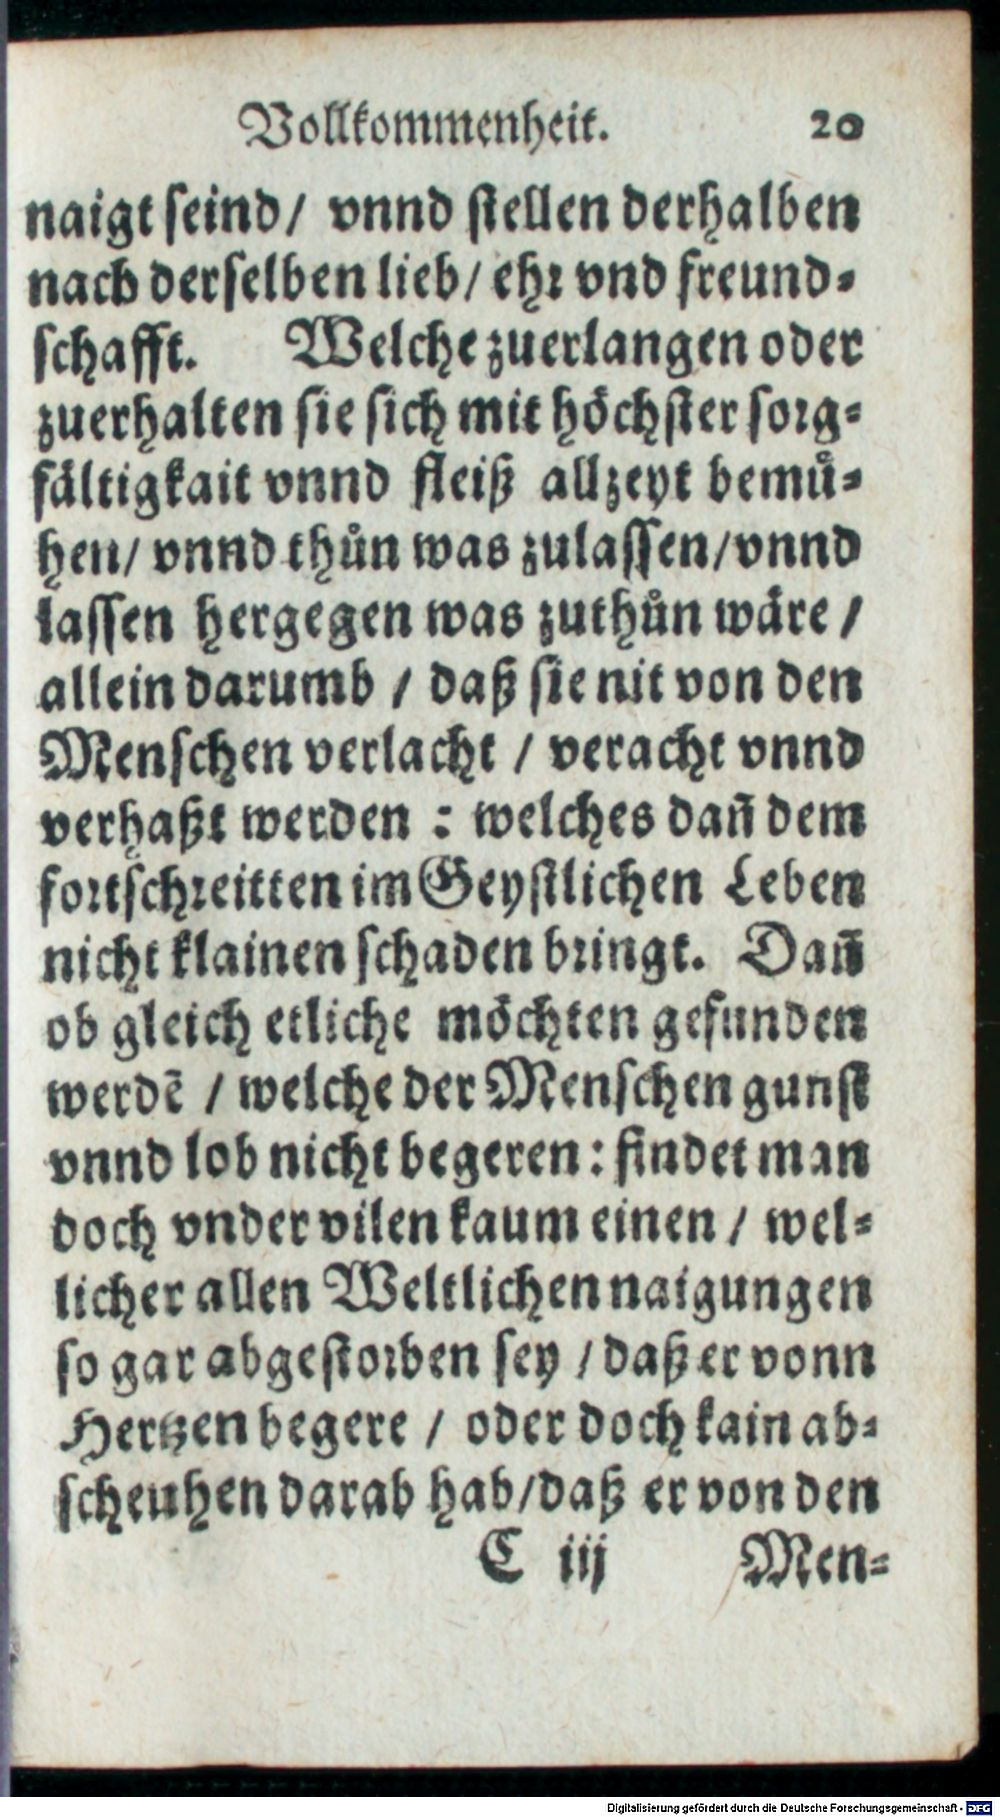 Vollkommenheit. 20
naigt seind/ vnnd stellen derhalben
nach derselben lieb/ ehr vnd freund-
schafft. Welche zuerlangen oder
zuerhalten sie sich mit höchster sorg-
fältigkait vnnd fleiß allzeyt bemuͤ-
hen/ vnnd thuͦn was zulassen/ vnnd
lassen hergegen was zuthuͦn wäre /
allein darumb / daß sie nit von den
Menschen verlacht / veracht vnnd
verhaßt werden : welches dañ dem
fortschreitten im Geystlichen Leben
nicht klainen schaden bringt. Dañ
ob gleich etliche möchten gefunden
werdē / welche der Menschen gunst
vnnd lob nicht begeren: findet man
doch vnder vilen kaum einen / wel-
licher allen Weltlichen naigungen
so gar abgestorben sey / daß er vonn
Hertzen begere / oder doch kain ab-
scheuhen darab hab/ daß er von den
C iij Men-
Digitalisierung gefördert durch die Deutsche Forschungsgemeinschaft - DFG